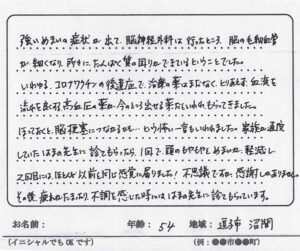 強いめまいの症状が出て、脳神経外科に行ったところ、脳の毛細血管
が細くなり、所々に、たんぱく質の固りができているということでした。
いわゆる、コロナワクチンの後遺症で、治療の薬はまだなく、とりあえず、血流を
流れを良くする、高血圧の薬が、今のところ出せる薬だといわれもらってきました。
ほっておくと、脳梗塞につながるかも…という怖い一言もいわれました。家族が通院
していたはまの先生に診てもらったら、1回で、頭のもやもや、めまいが、軽減し、
2回目には、ほとんど以前と同じ感覚に戻りました!不思議ですが、感謝しかありません。
その後、疲れがたまったり、不調を感じた時にははまの先生に診てもらっています。
お名前: 年齢: 54 地域: 逗子市 沼間
(イニシャルでもOKです) (例:●●市●●町)